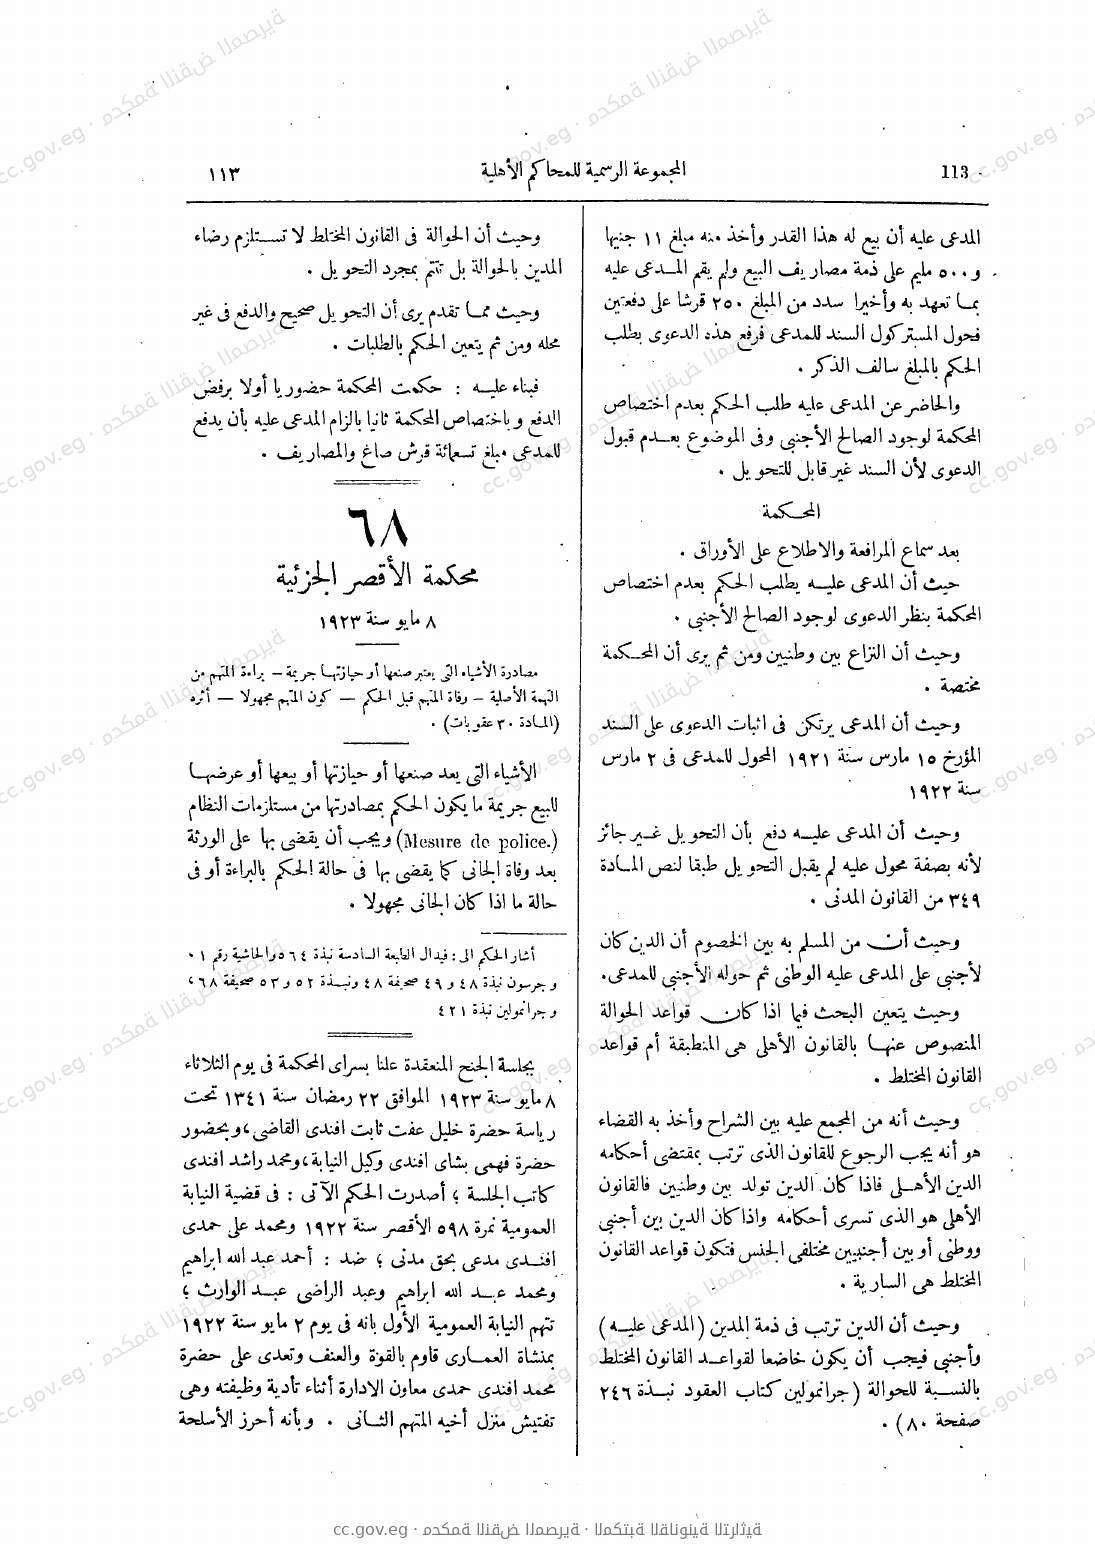 113
المجموعة الرسمية للمحاكم الأهلية
١١٣
المدعى عليه أن بيع له هذا القدر وأخذ منه مبلغ ١١ جنيها
و ٥٠٠ مليم على ذمة مصاريف البيع ولم يقم المدعى عليه
بما تعهد به وأخيرا سدد من المبلغ ٢٥٠ قرشا على دفعتين
فحول المستر كول السند للمدعى فرفع هذه الدعوى بطلب
الحكم بالمبلغ سالف الذكر .
والحاضر عن المدعى عليه طلب الحكم بعدم اختصاص
المحكمة لوجود الصالح الأجنبى وفى الموضوع بعدم قبول
الدعوى لأن السند غير قابل للتحويل .
المحكمة
بعد سماع المرافعة والاطلاع على الأوراق .
حيث أن المدعى عليه يطلب الحكم بعدم اختصاص
المحكمة بنظر الدعوى لوجود الصالح الأجنبى .
وحيث أن النزاع بين وطنيين ومن ثم يرى أن المحكمة
مختصة .
وحيث أن المدعى يرتكن فى اثبات الدعوى على السند
المؤرخ ١٥ مارس سنة ١٩٢١ المحول للمدعى فى ٢ مارس
سنة ١٩٢٢
وحيث أن المدعى عليه دفع بأن التحويل غير جائز
لأنه بصفة محول عليه لم يقبل التحويل طبقا لنص المادة
٣٤٩ من القانون المدنى .
وحيث أن من المسلم به بين الخصوم أن الدين كان
لأجنبى على المدعى عليه الوطنى ثم حوله الأجنبى للمدعى.
وحيث يتعين البحث فيما اذا كان قواعد الحوالة
المنصوص عنها بالقانون الأهلى هى المنطبقة أم قواعد
القانون المختلط .
وحيث أنه من المجمع عليه بين الشراح وأخذ به القضاء
هو أنه يجب الرجوع للقانون الذى ترتب بمقتضى أحكامه
الدين الأهلى فاذا كان الدين تولد بين وطنيين فالقانون
الأهلى هو الذى تسرى أحكامه واذا كان الدين بين أجنبى
ووطنى أو بين أجنبيين مختلفى الجنس فتكون قواعد القانون
المختلط هى السارية .
وحيث أن الدين ترتب فى ذمة المدين (المدعى عليه)
وأجنبى فيجب أن يكون خاضعا لقواعد القانون المختلط
بالنسبة للحوالة (جرانمولين كتاب العقود نبذة ٢٤٦
صفحة ٨٠) .
وحيث أن الحوالة فى القانون المختلط لا تستلزم رضاء
المدين بالحوالة بل تتم بمجرد التحويل .
وحيث مما تقدم يرى أن التحويل صحيح والدفع فى غير
محله ومن ثم يتعين الحكم بالطلبات .
فبناء عليه : حكمت المحكمة حضوريا أولا برفض
الدفع وباختصاص المحكمة ثانيا بالزام المدعى عليه بأن يدفع
للمدعى مبلغ تسعمائة قرش صاغ والمصاريف .
٦٨
محكمة الأقصر الجزئية
٨ مايو سنة ١٩٢٣
مصادرة الأشياء التى يعتبر صنعها أو حيازتها جريمة – براءة المتهم من
التهمة الأصلية – وفاة المتهم قبل الحكم – كون المتهم مجهولا – أثره
(المادة ٣٠ عقوبات) .
الأشياء التى يعد صنعها أو حيازتها أو بيعها أو عرضها
للبيع جريمة ما يكون الحكم بمصادرتها من مستلزمات النظام
(Mesure de police.) ويجب أن يقضى بها على الورثة
بعد وفاة الجانى كما يقضى بها فى حالة الحكم بالبراءة أو فى
حالة ما اذا كان الجانى مجهولا .
أشار الحكم الى : فيدال الطبعة السادسة نبذة ٥٦٤ والحاشية رقم ١٠
و جرسون نبذة ٤٨ و ٤٩ صحيفة ٤٨ ونبذة ٥٢ و ٥٣ صحيفة ٦٨،
و جرانمولين نبذة ٤٢١
بجلسة الجنح المنعقدة علنا بسراى المحكمة فى يوم الثلاثاء
٨ مايو سنة ١٩٢٣ الموافق ٢٢ رمضان سنة ١٣٤١ تحت
رياسة حضرة خليل عفت ثابت افندى القاضى، وبحضور
حضرة فهمى بشاى افندى وكيل النيابة، ومحمد راشد افندى
كاتب الجلسة ؛ أصدرت الحكم الآتى : فى قضية النيابة
العمومية نمرة ٥٩٨ الأقصر سنة ١٩٢٢ ومحمد على حمدى
افندى مدعى بحق مدنى ؛ ضد : أحمد عبد الله ابراهيم
ومحمد عبد الله ابراهيم وعبد الراضى عبد الوارث ؛
تتهم النيابة العمومية الأول بانه فى يوم ٢ مايو سنة ١٩٢٢
بمنشاة العمارى قاوم بالقوة والعنف وتعدى على حضرة
محمد افندى حمدى معاون الادارة أثناء تأدية وظيفته وهى
تفتيش منزل أخيه المتهم الثانى . وبأنه أحرز الأسلحة
cc.gov.eg · محكمة النقض المصرية · المكتبة القانونية التراثية